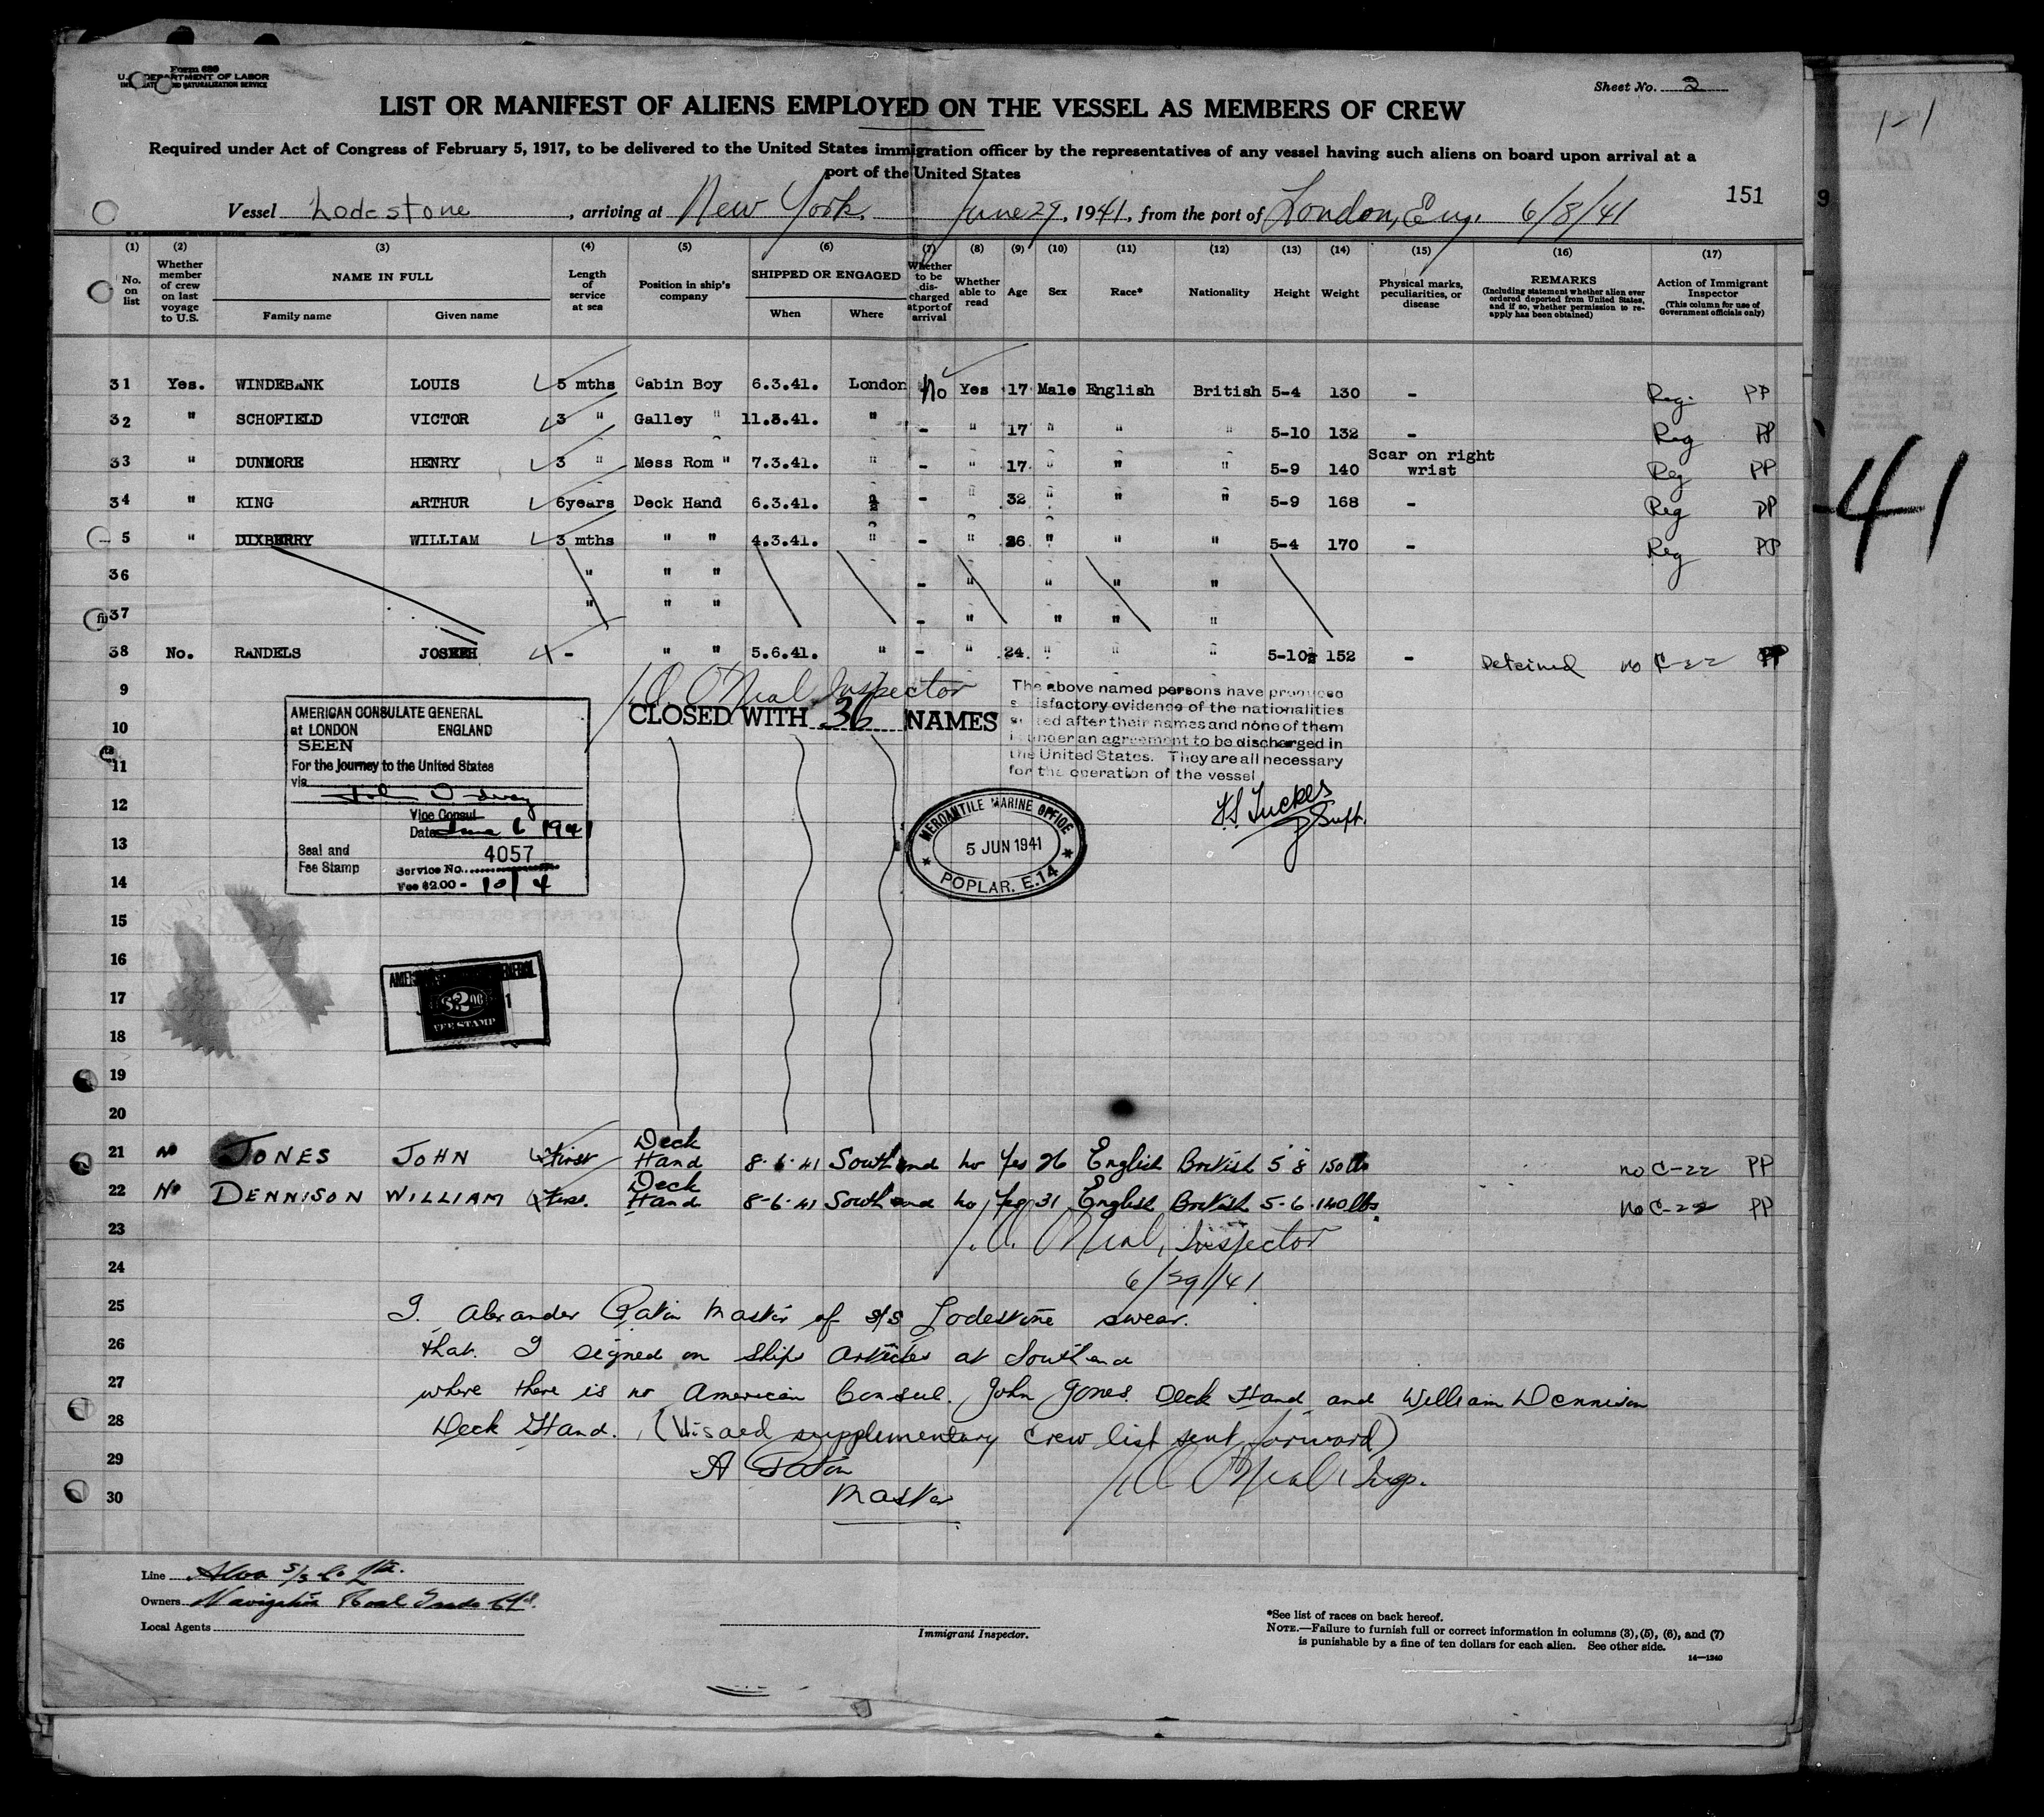 Form 689
U. S. DEPARTMENT OF LABOR
IMMIGRATION AND NATURALIZATION SERVICE
Sheet No. 2
LIST OR MANIFEST OF ALIENS EMPLOYED ON THE VESSEL AS MEMBERS OF CREW
Required under Act of Congress of February 5, 1917, to be delivered to the United States immigration officer by the representatives of any vessel having such aliens on board upon arrival at a
port of the United States
151
Vessel Lodestone, arriving at New York, June 29, 1941, from the port of London, Eng. 6/8/41
(1) (2) (3) (4) (5) (6) (7) (8) (9) (10) (11) (12) (13) (14) (15) (16) (17)
No. on list
Whether member of crew on last voyage to U.S.
NAME IN FULL
Family name Given name
Length of service at sea
Position in ship's company
SHIPPED OR ENGAGED
When Where
Whether to be discharged at port of arrival
Whether able to read
Age
Sex
Race*
Nationality
Height
Weight
Physical marks, peculiarities, or disease
REMARKS
(Including statement whether alien ever ordered deported from United States, and if so, whether permission to reapply has been obtained)
Action of Immigrant Inspector
(This column for use of Government officials only)
31 Yes. WINDEBANK LOUIS 5 mths Cabin Boy 6.3.41. London No Yes 17 Male English British 5-4 130 - Reg. PP
32 " SCHOFIELD VICTOR 3 " Galley " 11.3.41. " - " 17 " " " 5-10 132 - Reg PP
33 " DUNMORE HENRY 3 " Mess Rom " 7.3.41. " - " 17 " " " 5-9 140 Scar on right wrist Reg PP
34 " KING ARTHUR 6years Deck Hand 6.3.41. " - " 32 " " " 5-9 168 - Reg PP
5 " DIXBERRY WILLIAM 3 mths " " 4.3.41. " - " 26 " " " 5-4 170 - Reg PP
36 " " " - " " " "
37 " " " - " " " "
38 No. RANDELS JOSEPH - " " 5.6.41. " - " 24 " " " 5-10 152 - Detained no C-22 PP
9
O'Neal, Inspector
CLOSED WITH 36 NAMES
The above named persons have produced
satisfactory evidence of the nationalities
stated after their names and none of them
is under an agreement to be discharged in
the United States. They are all necessary
for the operation of the vessel
Tucker
Supt.
AMERICAN CONSULATE GENERAL
at LONDON ENGLAND
SEEN
For the journey to the United States
via
John
Vice Consul
Date June 6 1941
Seal and
Fee Stamp
4057
Service No.
Fee $2.00 - 10/4
MERCANTILE MARINE OFFICE
5 JUN 1941
POPLAR. E.14
10
11
12
13
14
15
16
AMERICAN CONSULATE GENERAL
$2.00
FEE STAMP
17
18
19
20
21 No JONES JOHN First Deck Hand 8-6-41 Southend no Yes 26 English British 5 8 150 lbs no C-22 PP
22 No DENNISON WILLIAM First. Deck Hand 8-6-41 Southend no Yes 31 English British 5-6 140 lbs. no C-22 PP
23
O'Neal, Inspector
24
6/29/41
25 I. Alexander master of s/s Lodestone swear.
26 that I signed on ships articles at Southend
27 where there is no American Consul. John Jones Deck Hand and William Dennison
28 Deck Hand. (Visaed supplementary crew list sent forward)
29 A
O'Neal, Insp.
30 Master
Line Alva S/S Co Ltd.
Owners Navigation & Coal Trade Co Ltd.
Local Agents
Immigrant Inspector.
*See list of races on back hereof.
NOTE.—Failure to furnish full or correct information in columns (3), (5), (6), and (7)
is punishable by a fine of ten dollars for each alien. See other side.
14—1240
1-1
9
41